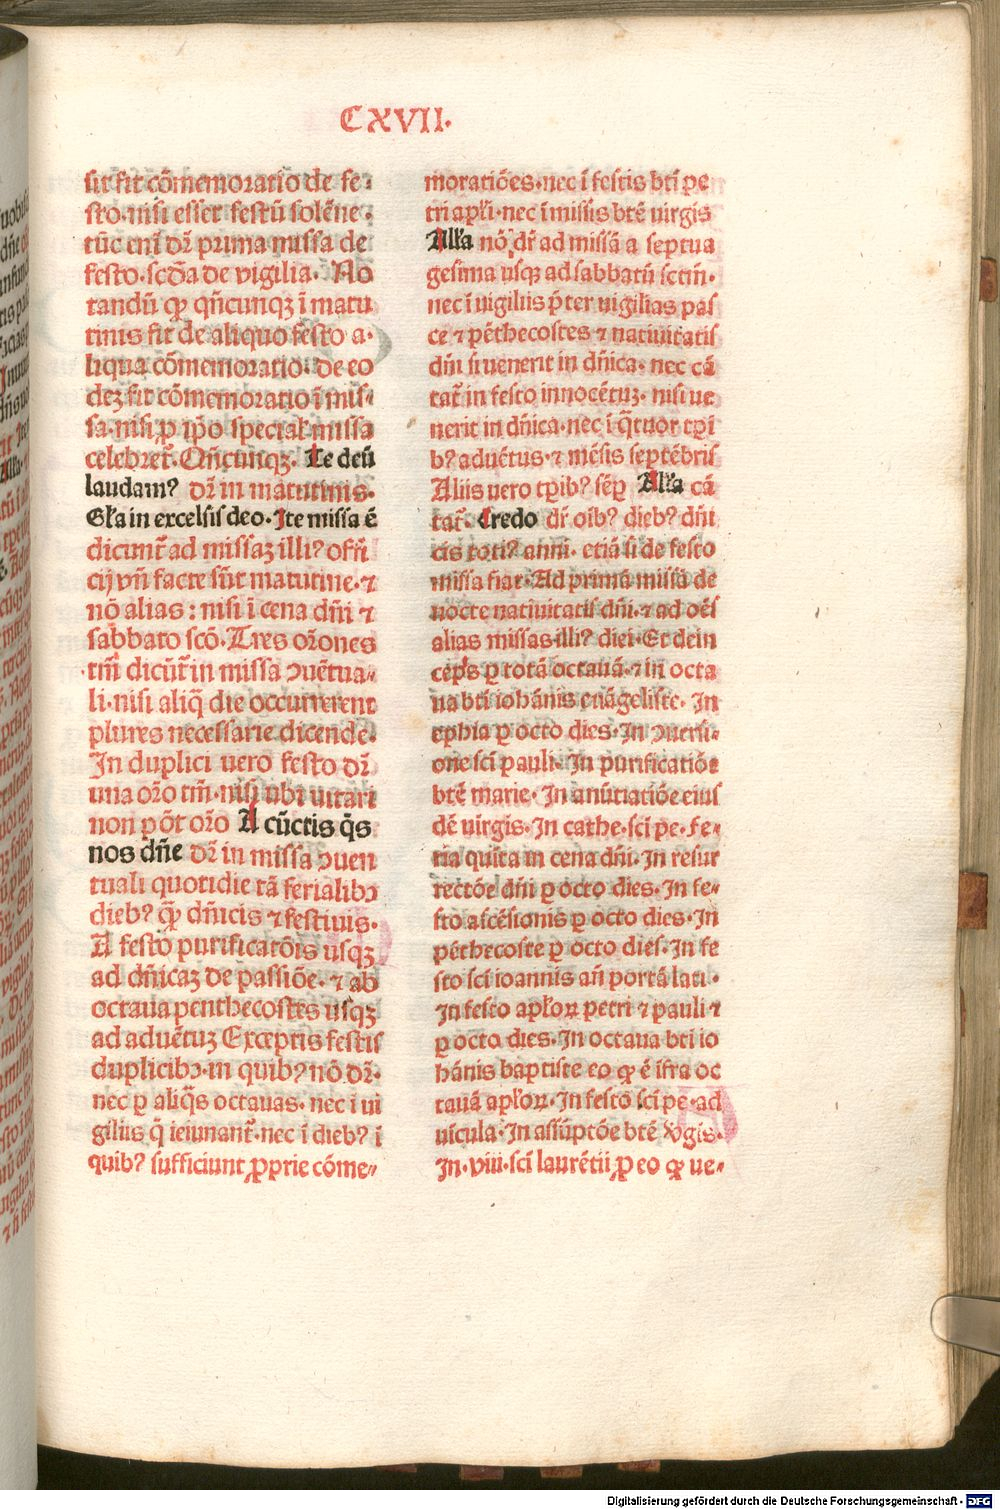 CXVII.
sit fit cōmemoratio de fe-
sto. nisi esset festū solēne.
tūc eni dr̄ prima missa de
festo. scd̄a de vigilia. No
tandū ꝙ qn̄cunqꝫ ī matu
tinis fit de aliquo festo a-
liqua cōmemoratio: de eo
deꝫ fit cōmemoratio ī mis-
sa. nisi ꝓ ip̄o specialˀ missa
celebret᷑. Qn̄cunqꝫ. Te deū
laudamꝰ dr̄ in matutinis.
Gl̄a in excelsis deo. Ite missa ē
dicunt᷑ ad missaꝫ illiꝰ offi
cij vn̄ facte sūt matutine. ⁊
nō alias: nisi ī cena dn̄i ⁊
sabbato scō. Tres or̄ones
tm̄ dicūt᷑ in missa ↄuētua-
li. nisi aliq̄ die occurrerent
plures necessarie dicende.
In duplici uero festo dr̄
una or̄o tm̄. nisi ubi uitari
non pōt or̄o A cūctis q̄s
nos dn̄e dr̄ in missa ↄuen
tuali quotidie tā ferialibꝰ
diebꝰ qꝫ̄ dn̄icis ⁊ festiuis.
A festo purificatōis usqꝫ
ad dn̄icaꝫ de passiōe. ⁊ ab
octaua penthecostes usqꝫ
ad aduētuꝫ Exceptis festis
duplicibꝰ. in quibꝰ nō dr̄.
nec ꝑ aliq̄s octauas. nec ī ui
giliis q̄ ieiunant᷑. nec ī diebꝰ ī
quibꝰ sufficiunt ꝓprie cōme-
moratiōes. nec ī festis bt̄i pe
tri apl̄i. nec ī missis bt̄e uirgis
All̄a nō dr̄ ad missā a septua
gesima usqꝫ ad sabbatū sctm̄.
nec ī uigiliis p̄ter uigilias pas
ce ⁊ pēthecostes ⁊ natiuitatis
dn̄i si uenerit in dn̄ica. nec cā
tat᷑ in festo innocētuꝫ. nisi ue
nerit in dn̄ica. nec ī q̄tuor tꝑi
bꝰ aduētus. ⁊ mēsis septēbris
Aliis uero tꝑibꝰ sēꝑ All̄a cā
tat᷑. Credo dr̄ oībꝰ diebꝰ dn̄i
cis totiꝰ anni. etiā si de festo
missa fiat. Ad primā missā de
nocte natiuitatis dn̄i. ⁊ ad oēs
alias missas illiꝰ diei. Et dein
ceps ꝑ totā octauā. ⁊ in octa
ua bt̄i iohānis euāgeliste. In
ephia ꝑ octo dies. In ↄuersi-
one sci pauli. In purificatiōe
bt̄e marie. In anūtiatiōe eius
dē uirgis. In cathe. sci pe. Fe-
ria quīta in cena dn̄i. In resur
rectōe dn̄i ꝑ octo dies. In fe-
sto ascēsionis ꝑ octo dies. In
pēthecoste ꝑ octo dies. In fe
sto sci ioannis an̄ portā lati.
In festo apl̄oꝝ petri ⁊ pauli ⁊
ꝑ octo dies. In octaua bt̄i io
hānis baptiste eo ꝙ ē īfra oc
tauā apl̄oꝝ. In festo sci pe. ad
uīcula. In assūptōe bt̄e v̄gis.
In. viii. sci laurētii ꝓ eo ꝙ ue-
Digitalisierung gefördert durch die Deutsche Forschungsgemeinschaft - DFG